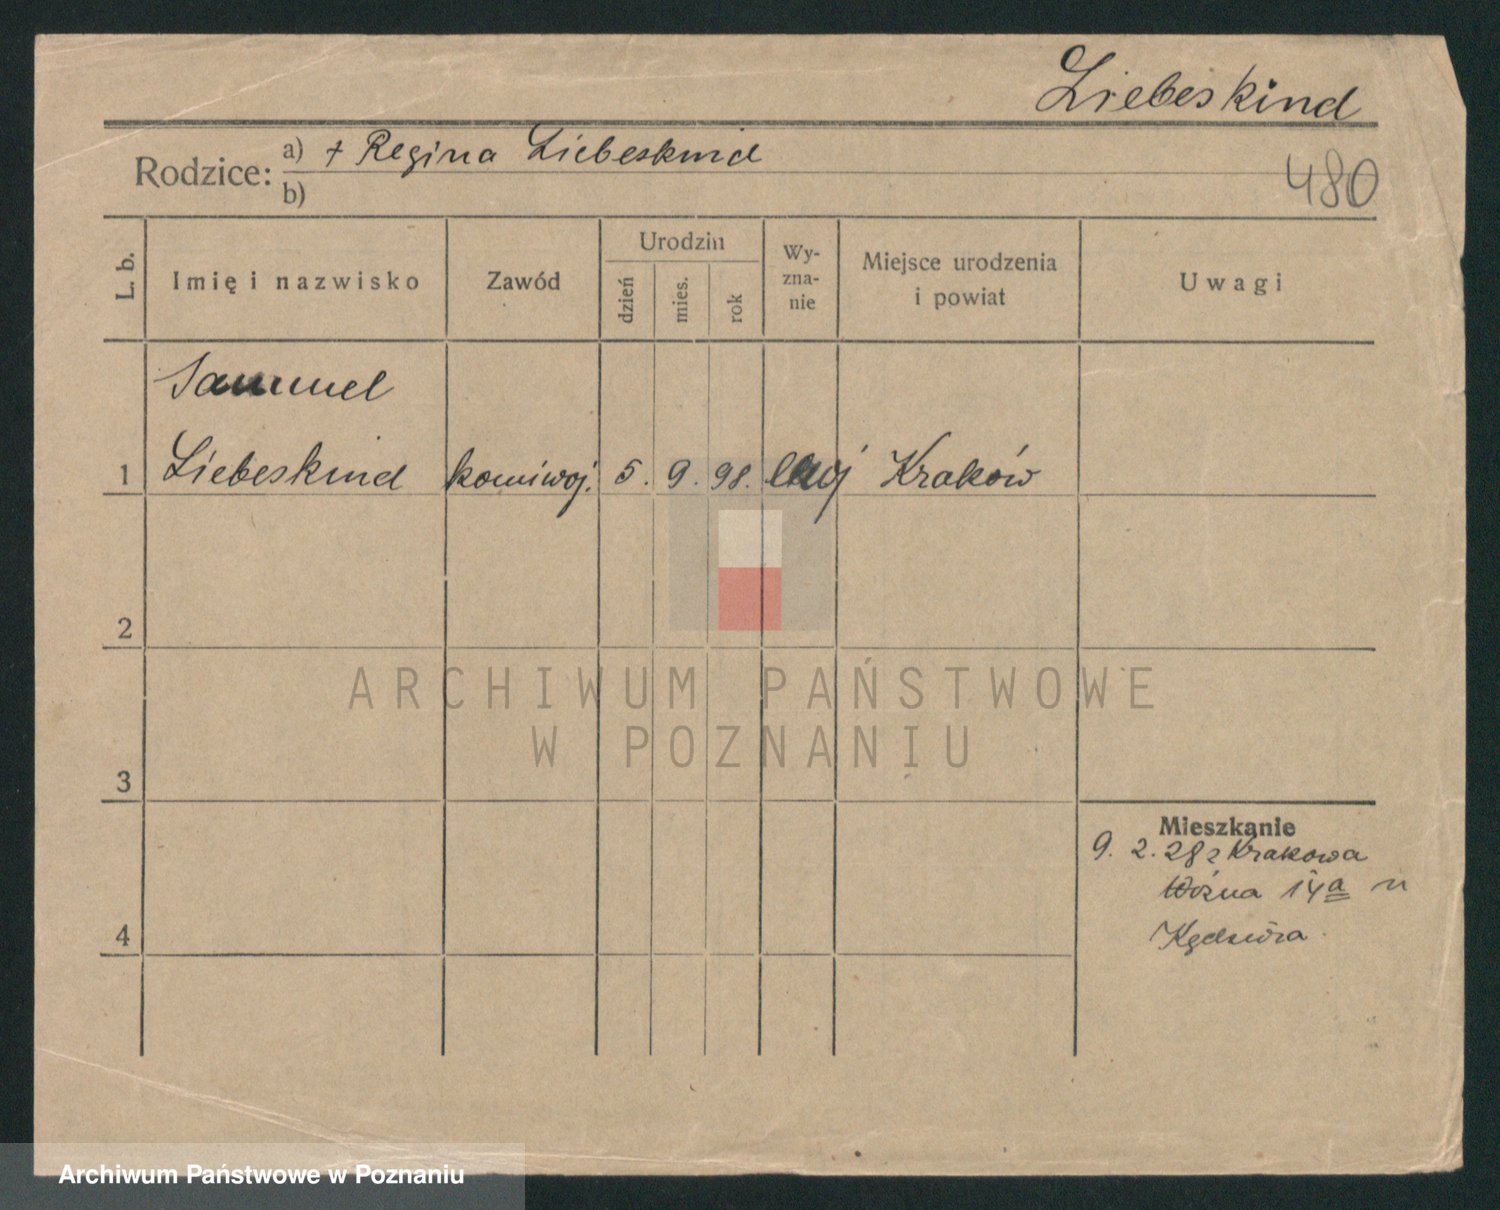 Liebeskind
Rodzice: a) + Regina Liebeskind
b)
480
L. b.
Imię i nazwisko
Zawód
Urodzin
dzień
mies.
rok
Wy-
zna-
nie
Miejsce urodzenia
i powiat
Uwagi
Sammel
1 Liebeskind komiwoj. 5. 9. 98. Kraków
2
3
4
Mieszkanie
9. 2. 28 z Krakowa
Woźna 14a u
Kędziora
ARCHIWUM PAŃSTWOWE
W POZNANIU
Archiwum Państwowe w Poznaniu